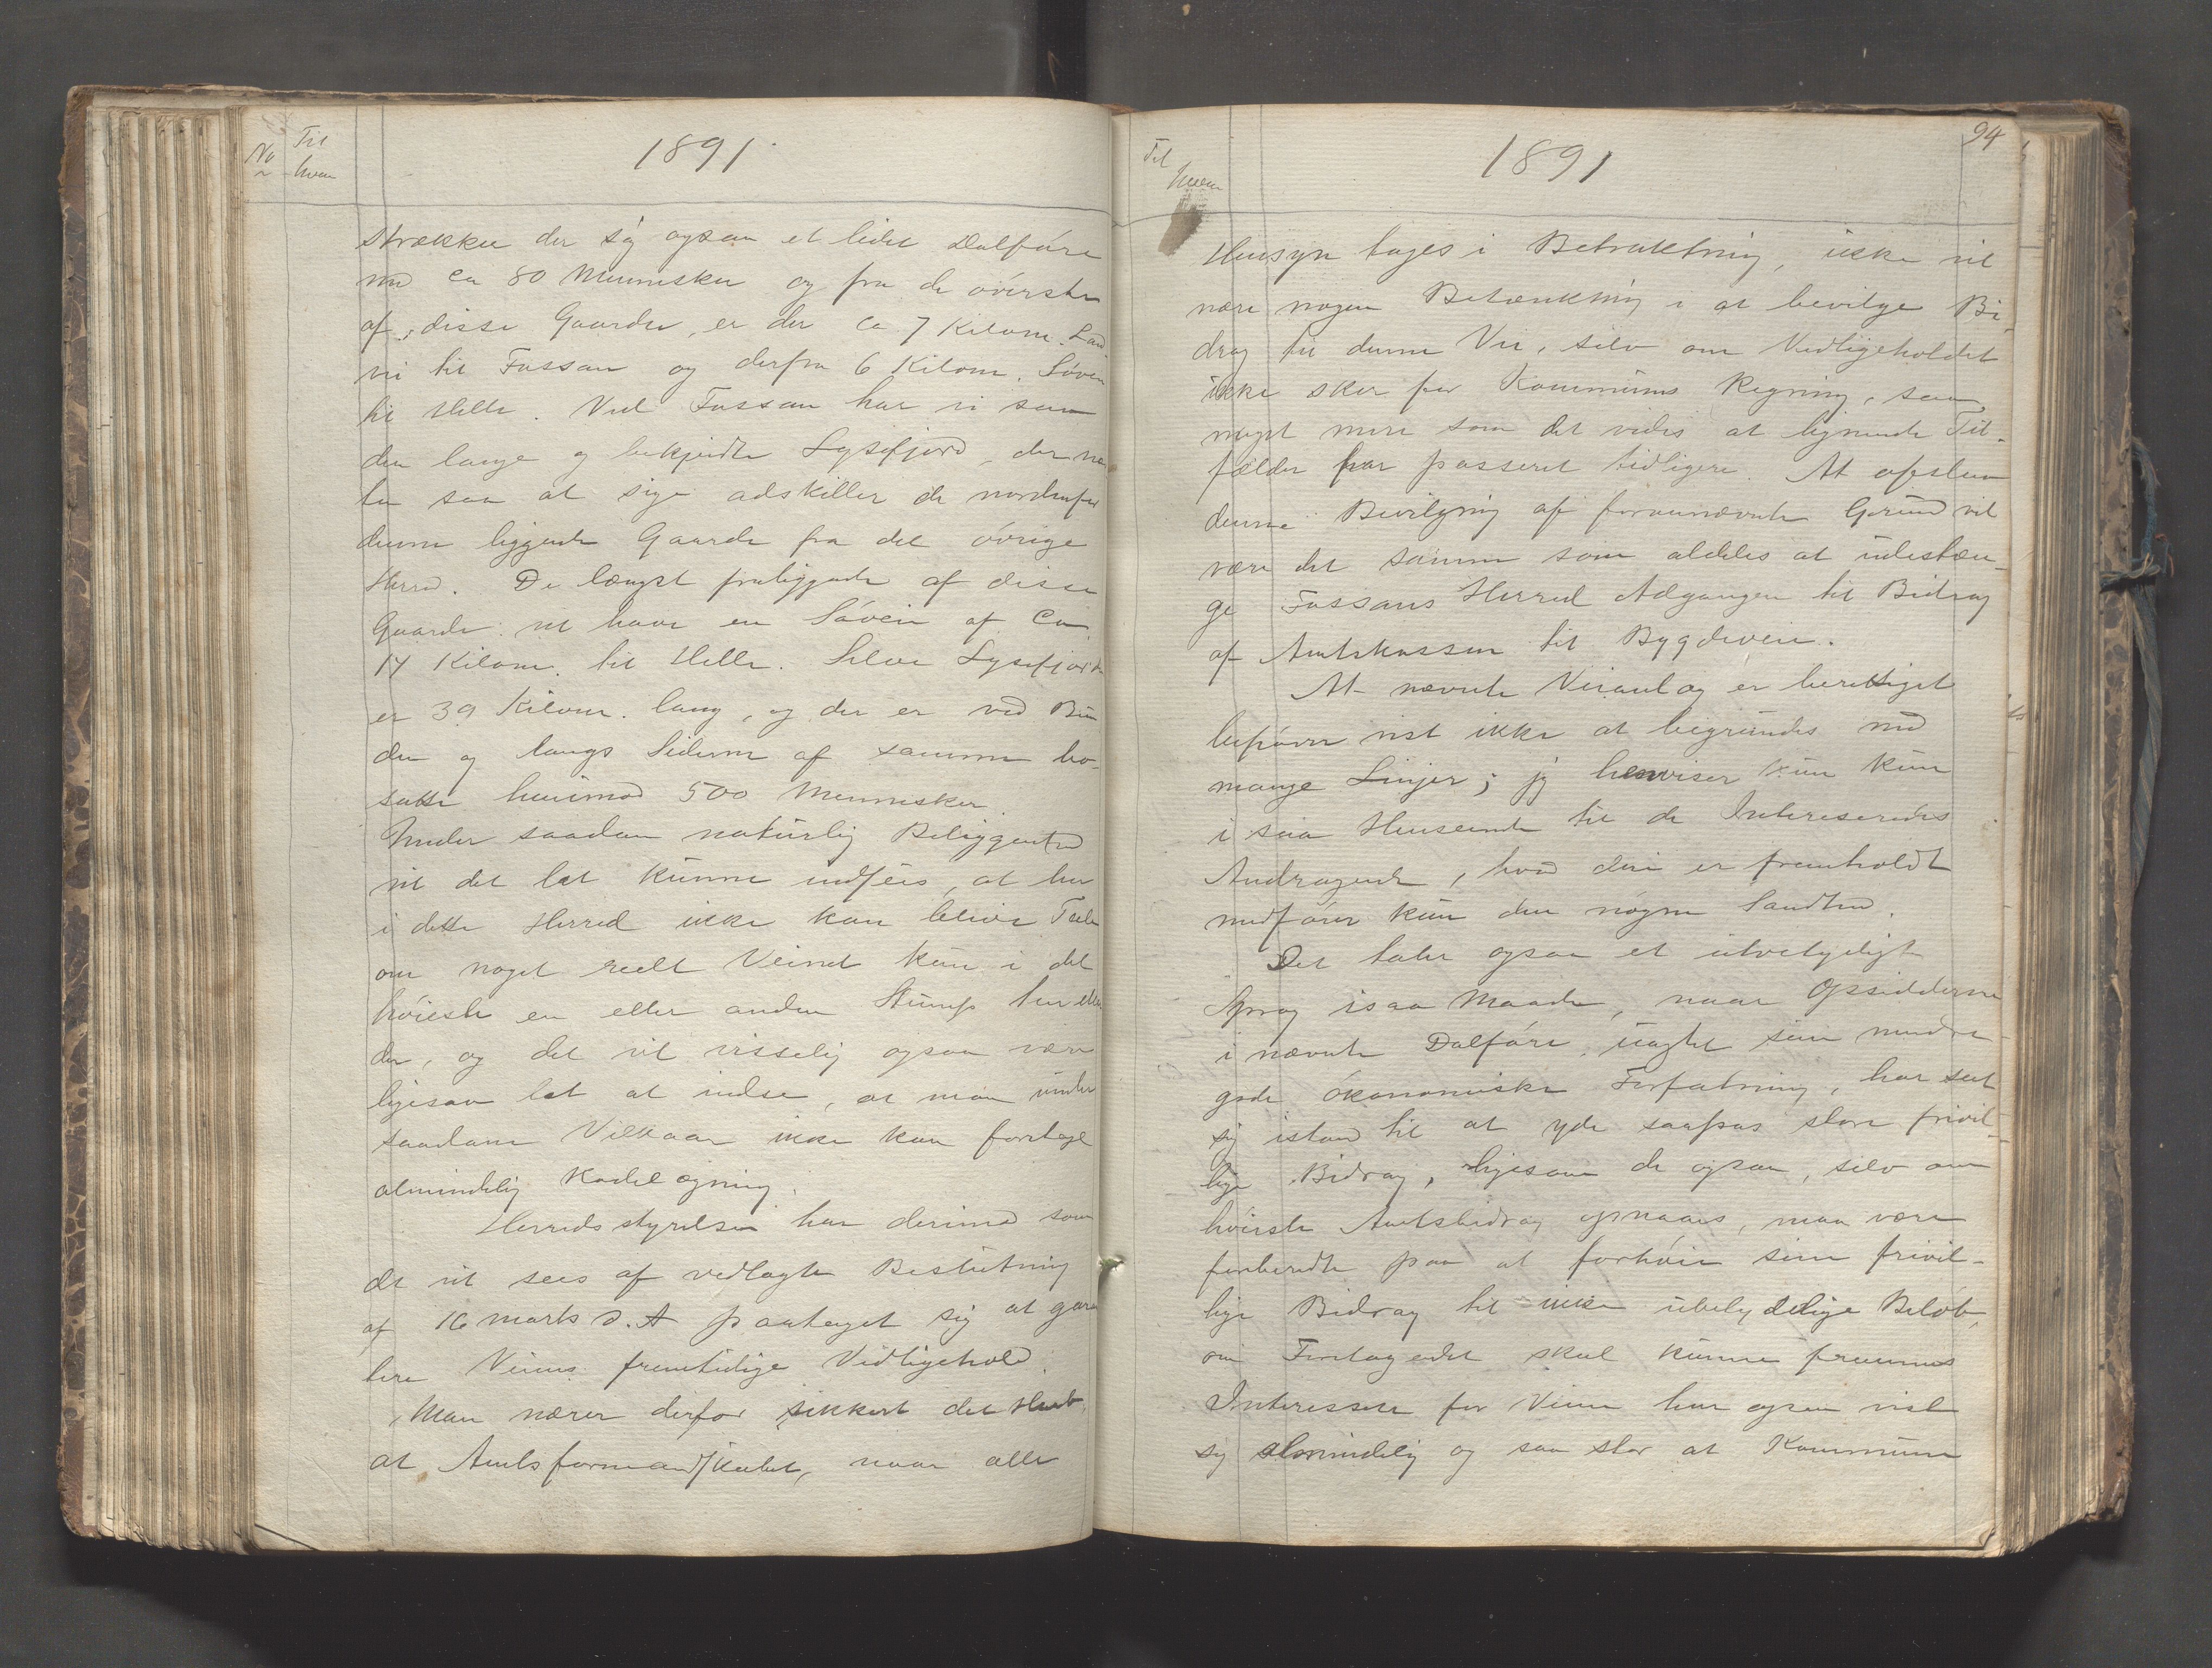 No
Til
hvem
1891
strækker der sig ogsaa et lidet Dalføre
med ca 80 Mennesker og fra de øverste
af disse Gaarde, er der ca 7 Kilom. Land
vei til Fossan og derfra 6 Kilom. Søvei
til Helle. Ved Fossan har vi saa
den lange og bekjendte Lysefjord, der næ
ten saa at sige adskiller de nordenfor
denne liggende Gaarde fra det øvrige
Herred. De længst fraliggende af disse
Gaarde vil have en Søvei af Ca
17 Kilom. til Helle. Selve Lysefjorden
er 39 Kilom. lang, og der er ved Bun
den og langs Siderne af samme bo-
satte henimod 500 Mennesker.
Under saadan naturlig Beliggenhed
vil det let kunne indsees, at her
i dette Herred ikke kan blive Tale
om noget reelt Veinet kun i det
høieste en eller anden Stump her eller
der, og det vil visselig ogsaa være
ligesaa let at indse, at man under
saadanne Vilkaar ikke kan foretage
almindelig Rodelægning.
Herredsstyrelsen har derimod som
det vil sees af vedlagte Beslutning
af 16 marts d. A paataget sig at garan
tere Veiens fremtidige Vedligehold.
Man nærer derfor sikkert det Haab,
at Amtsformandskabet, naar alle
Til
hvem
1891
94
Hensyn tages i Betraktning, ikke vil
nære nogen Betænkning i at bevilge Bi-
drag til denne Vei, selv om Vedligeholdet
ikke sker for Kommunens Regning, saa
meget mere som det vides at lignende Til-
fælder har passeret tidligere. At afslaa
denne Bevilgning af forannævnte Grund vil
være det samme som aldeles at udestæn-
ge Fossans Herred Adgangen til Bidrag
af Amtskassen til Bygdeveie.
At nævnte Veianlæg er berettiget
behøver vist ikke at begrundes med
mange Linjer; jg henviser kun kun
i saa Henseende til de Interesseredes
Andragende, hvad deri er fremholdt
medfører kun den nøgne Sandhed.
Det taler ogsaa et utvetydigt
Sprog i saa Maade, naar Opsidderne
i nævnte Dalføre, uagtet sin mindre
gode økonomiske Forfatning, har seet
sig istand til at yde saapas store frivil-
lige Bidrag, ligesom de ogsaa, selv om
høieste Amtsbidrag opnaaes, maa være
forberedte paa at forhøie sine frivil-
lige Bidrag til ikke ubetydelige Beløb,
om Foretagedet skal kunne fremmes
Interessen for Veien har ogsaa vist
sig almindelig og saa stor at Kommunen